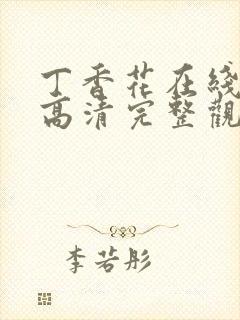 丁香花在綫
高清完整觀
李若彤